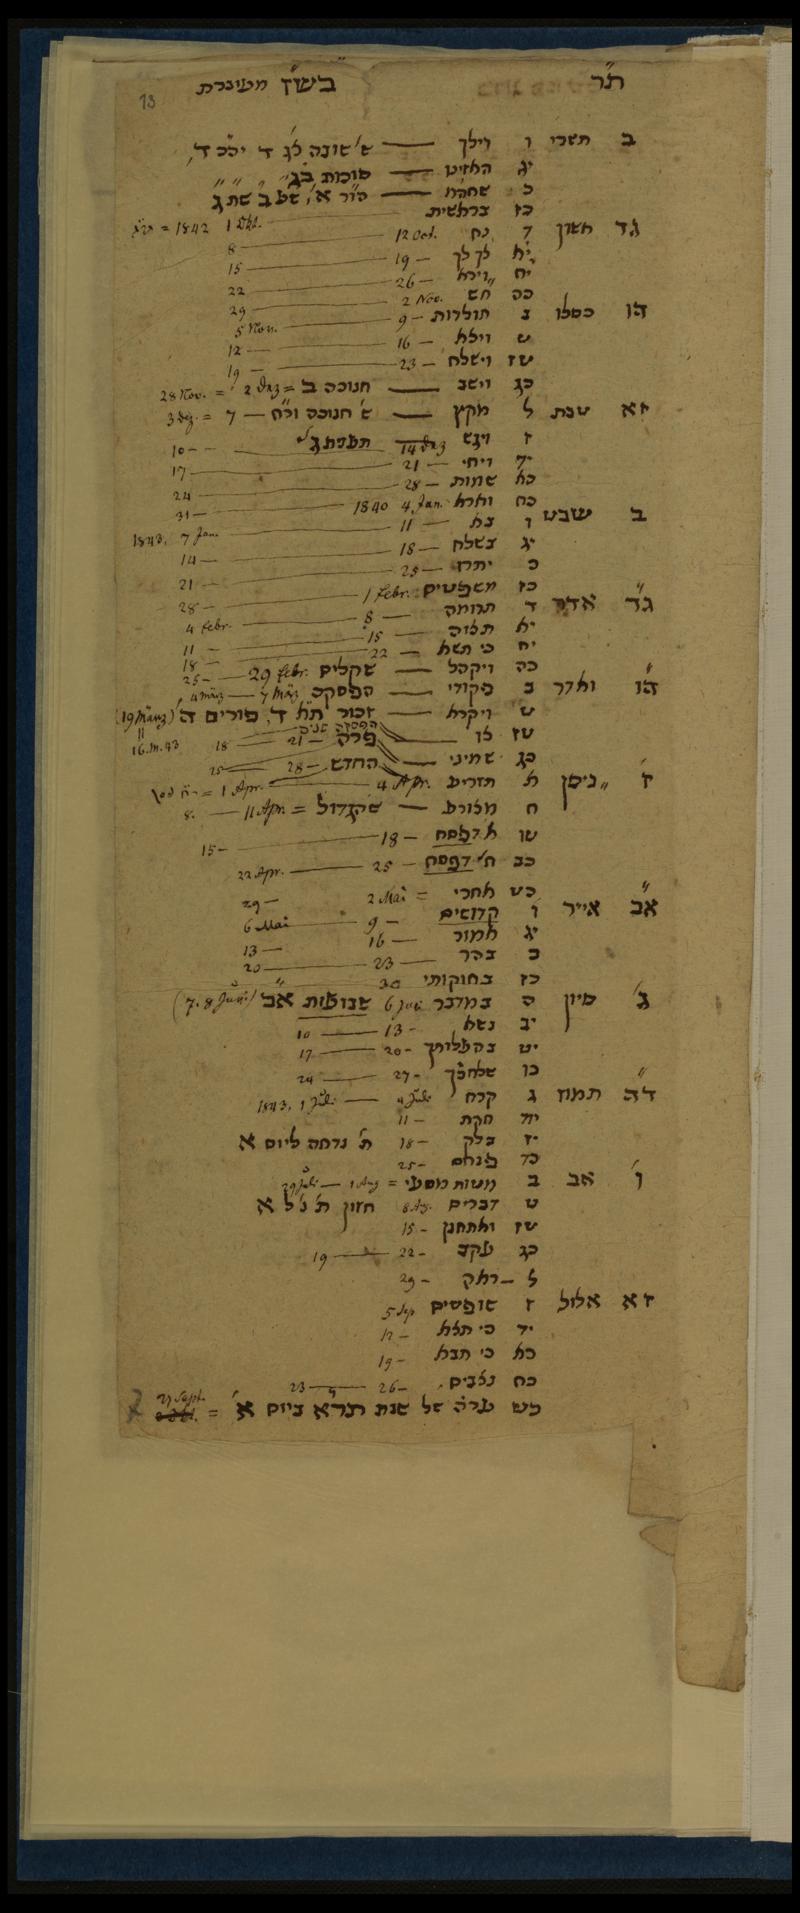 13
ת״ר בש״ז מעוברת
ב תשרי ו וילך — ש׳ שובה צ״ג ד יהכ ד,
יג האזינו — סוכות בג״
כ שחה״מ — הו״ר א׳, שע ב שת ג
כז בראשית 1 Okt. 1842 =
גד חשון ד נח 12 Oct. 8
יא לך לך 19 — 15
יח וירא 26 — 22
כה חש 2 Nov. 29
הו כסלו ב תולדות 9 — 5 Nov.
ט ויצא 16 — 12
טז וישלח 23 — 19
כג וישב — חנוכה ב = 2 Dez = 28 Nov.
זא טבת ל מקץ — ש׳ חנוכה ור״ח — 7 = 3 Dez.
ז ויגש 14 Dez תענית ג׳ 10 —
יד ויחי — 21 17
כא שמות — 28 24
כח וארא 4 Jan. 1840 31 —
ב שבט ו בא — 11 1843, 7 Jan.
יג בשלח — 18 14 —
כ יתרו — 25 21 —
כז משפטים 1 Febr. 28 —
ג״ד אדר ד תרומה — 8 4 Febr.
יא תצוה — 15 11 —
יח כי תשא — 22 18 —
כה ויקהל — שקלים 29 Febr. 25 —
ה״ו ואדר ב פקודי — הפסקה 7 März — 4 März
ט ויקרא — זכור ת״א ד, פורים ה׳ (19 März)
טז צו — הפסקה שניה פרה — 21 — 18 16. m. 43
כג שמיני — החדש — 28 — 25
ז׳ ניסן א תזריע 4 Apr. 1 Apr. =
ח מצורע — ש׳ הגדול = 11 Apr. — 8.
טו א דפסח — 18 15 —
כב ח׳ דפסח — 25 22 Apr.
כט אחרי = 2 Mai 29 —
א״ב אייר ו קדושים — 9 6 Mai
יג אמור — 16 13 —
כ בהר — 23 — 20
כז בחוקותי 30
ג׳ סיון ה במדבר 6 Jun שבועות א״ב (7. 8 Jun.)
יב נשא — 13 — 10
יט בהעלותך 20 — 17
כו שלחך 27 — 24
ד״ה תמוז ג קרח 4 Juli — 1843, 1 Juli
חקת — 11
יז בלק — 18 ת׳ נדחה ליום א
כד פנחס — 25
ו׳ אב ב מטות מסעי = 1 Aug — 29 Juli
ט דברים 8 Ag. חזון ת׳ נ׳ ל א
טז ואתחנן 15
כג עקב 22 — 19
ל ראה 29
זא אלול ז שופטים 5 Sep
יד כי תצא — 12
כא כי תבא — 19
כח נצבים. 26 — 23
כט ער״ה של שנת תר״א ביום א׳ = 27 Sept.